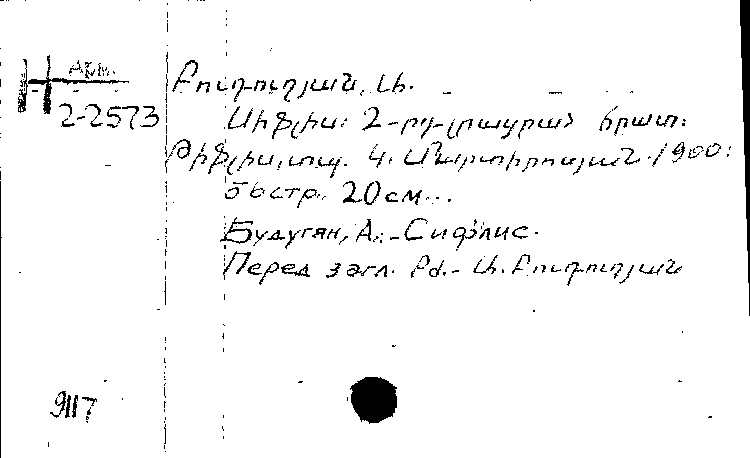 Н Арм.
2-2573
Բուդուղյան, Ա.
Սիֆլիս: 2-րդ լրացրած հրատ.
Թիֆլիս, տպ. Կ. Մարտիրոսյան. 1900:
56 стр. 20 см...
Будугян, А. - Сифлис.
Перед загл. Բժ. - Ա. Բուդուղյան
9117